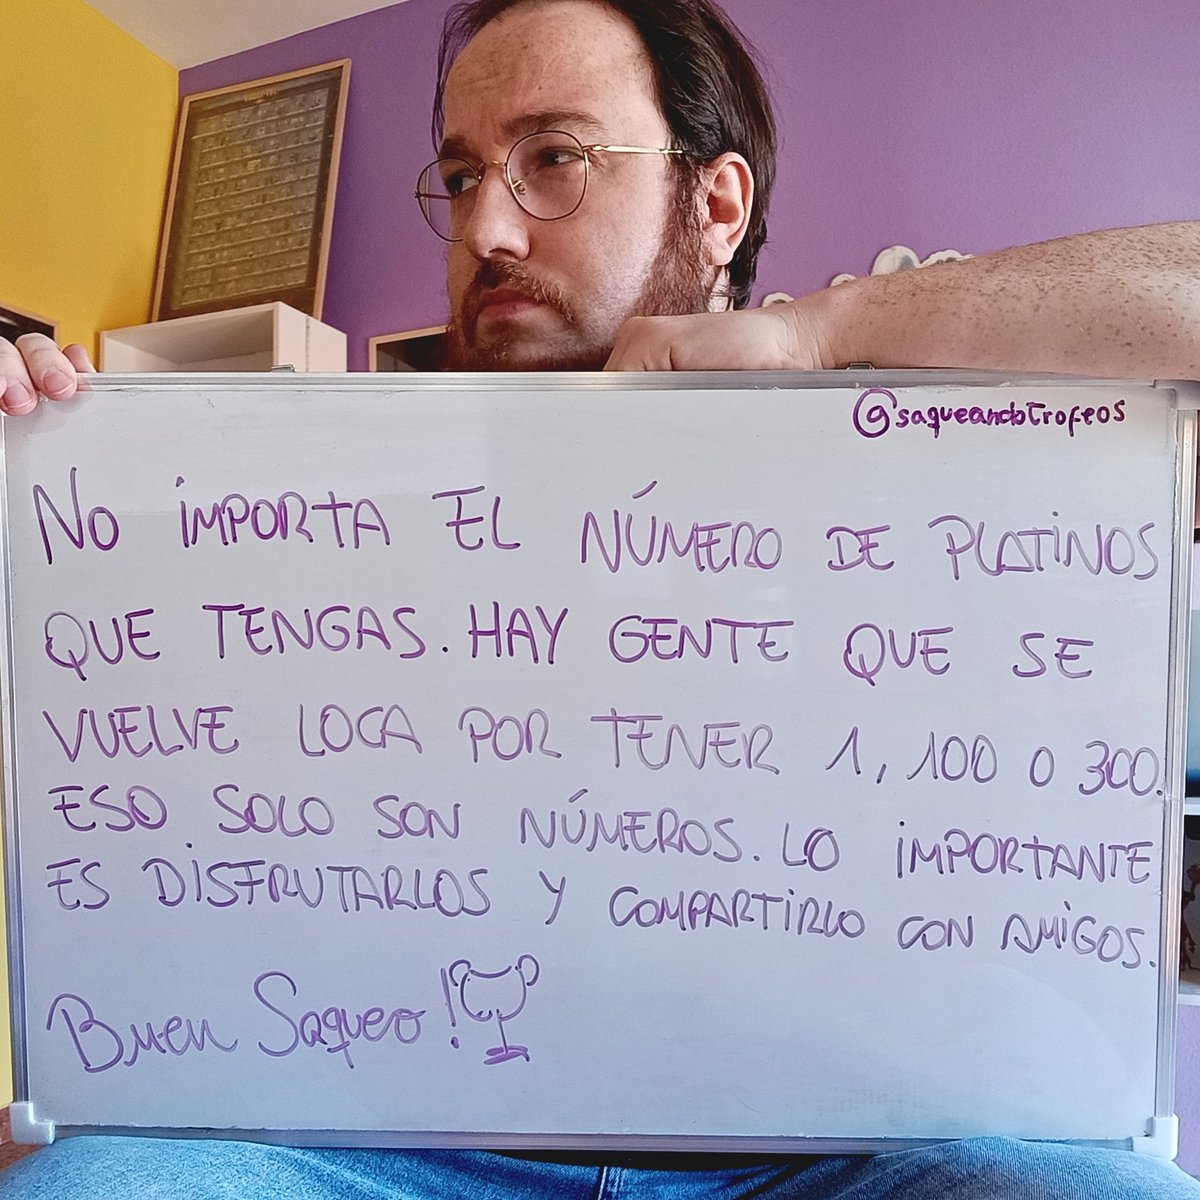 @saqueandotrofeos
NO IMPORTA EL NÚMERO DE PLATINOS
QUE TENGAS. HAY GENTE QUE SE
VUELVE LOCA POR TENER 1, 100 O 300.
ESO SOLO SON NÚMEROS. LO IMPORTANTE
ES DISFRUTARLOS Y COMPARTIRLO CON AMIGOS.
Buen Saqueo!